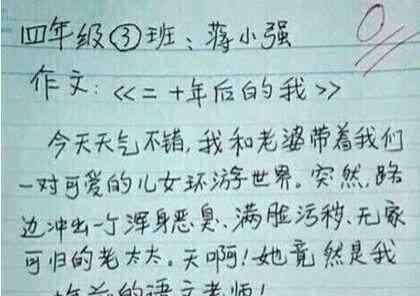 0
四年级③班：蒋小强
作文：<<二十年后的我>>
今天天气不错,我和老婆带着我们
一对可爱的儿女环游世界。突然,路
边冲出一个浑身恶臭、满脸污秽、无家
可归的老太太。天啊!她竟然是我
十年前的语文老师!